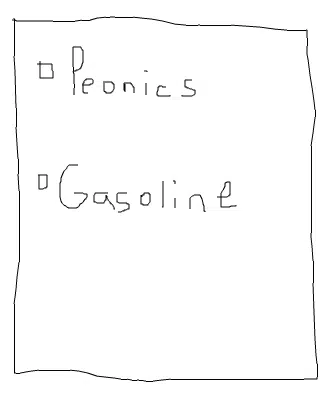 Peonics
Gasoline